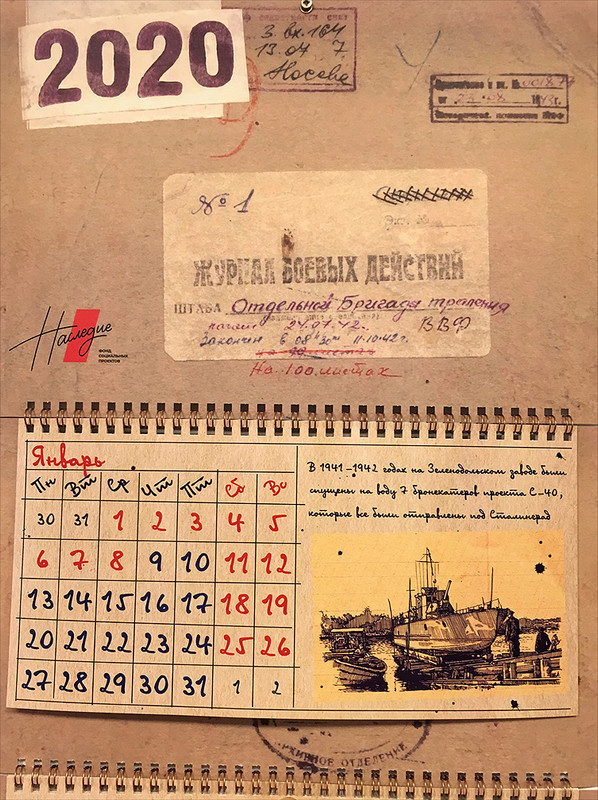 2020
3 вх. 164
13.04 7
Носова
№ 1
ЖУРНАЛ БОЕВЫХ ДЕЙСТВИЙ
ШТАБА Отдельной Бригады траления
начат 24.07.42. ВВФ
Закончен в 08 ч 30 м 11.10.42 г.
На 100 листах
Наследие
ФОНД
СОЦИАЛЬНЫХ
ПРОЕКТОВ
Январь
Пн Вт Ср Чт Пт Сб Вс
30 31 1 2 3 4 5
6 7 8 9 10 11 12
13 14 15 16 17 18 19
20 21 22 23 24 25 26
27 28 29 30 31 1 2
В 1941-1942 годах на Зеленодольском заводе были
спущены на воду 7 бронекатеров проекта С-40,
которые все были отправлены под Сталинград
АРХИВНОЕ ОТДЕЛЕНИЕ